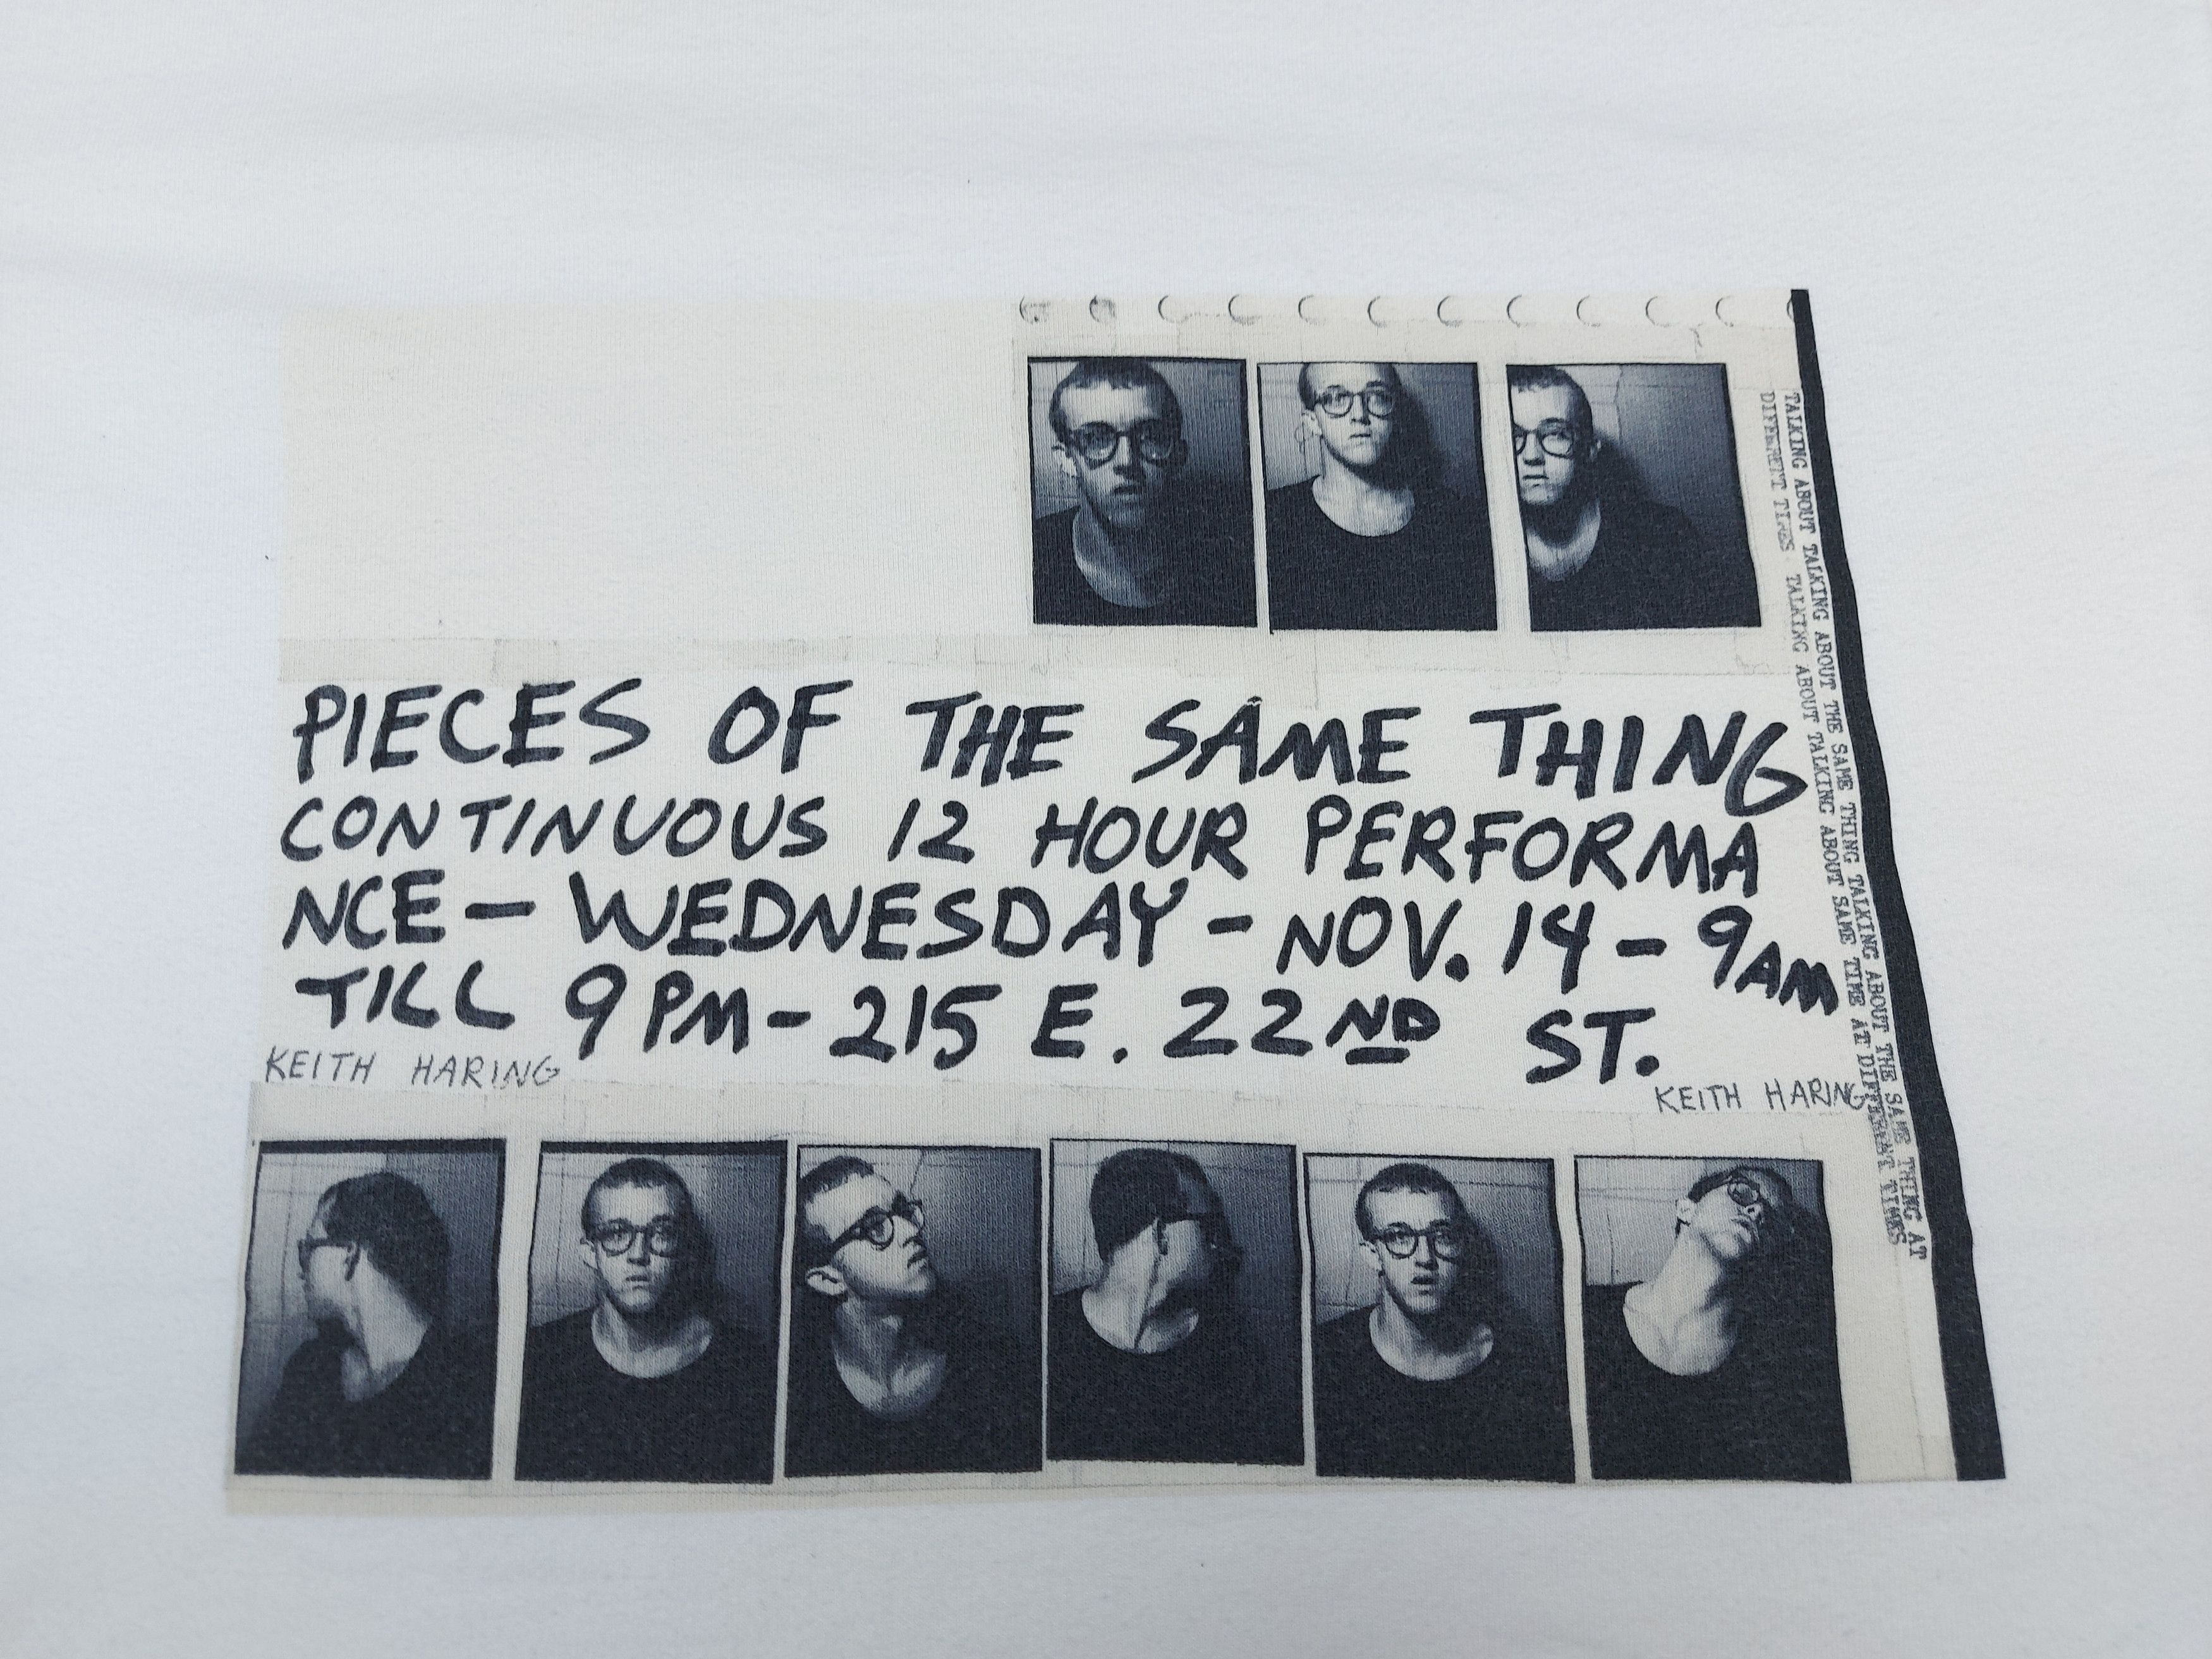 PIECES OF THE SAME THING
CONTINUOUS 12 HOUR PERFORMA
NCE – WEDNESDAY – NOV. 14 – 9AM
TILL 9PM – 215 E. 22ND ST.
KEITH HARING
KEITH HARING
TALKING ABOUT TALKING ABOUT THE SAME THING TALKING ABOUT THE SAME THING AT
DIFFERENT TIMES TALKING ABOUT TALKING ABOUT SAME TIME AT DIFFERENT TIMES